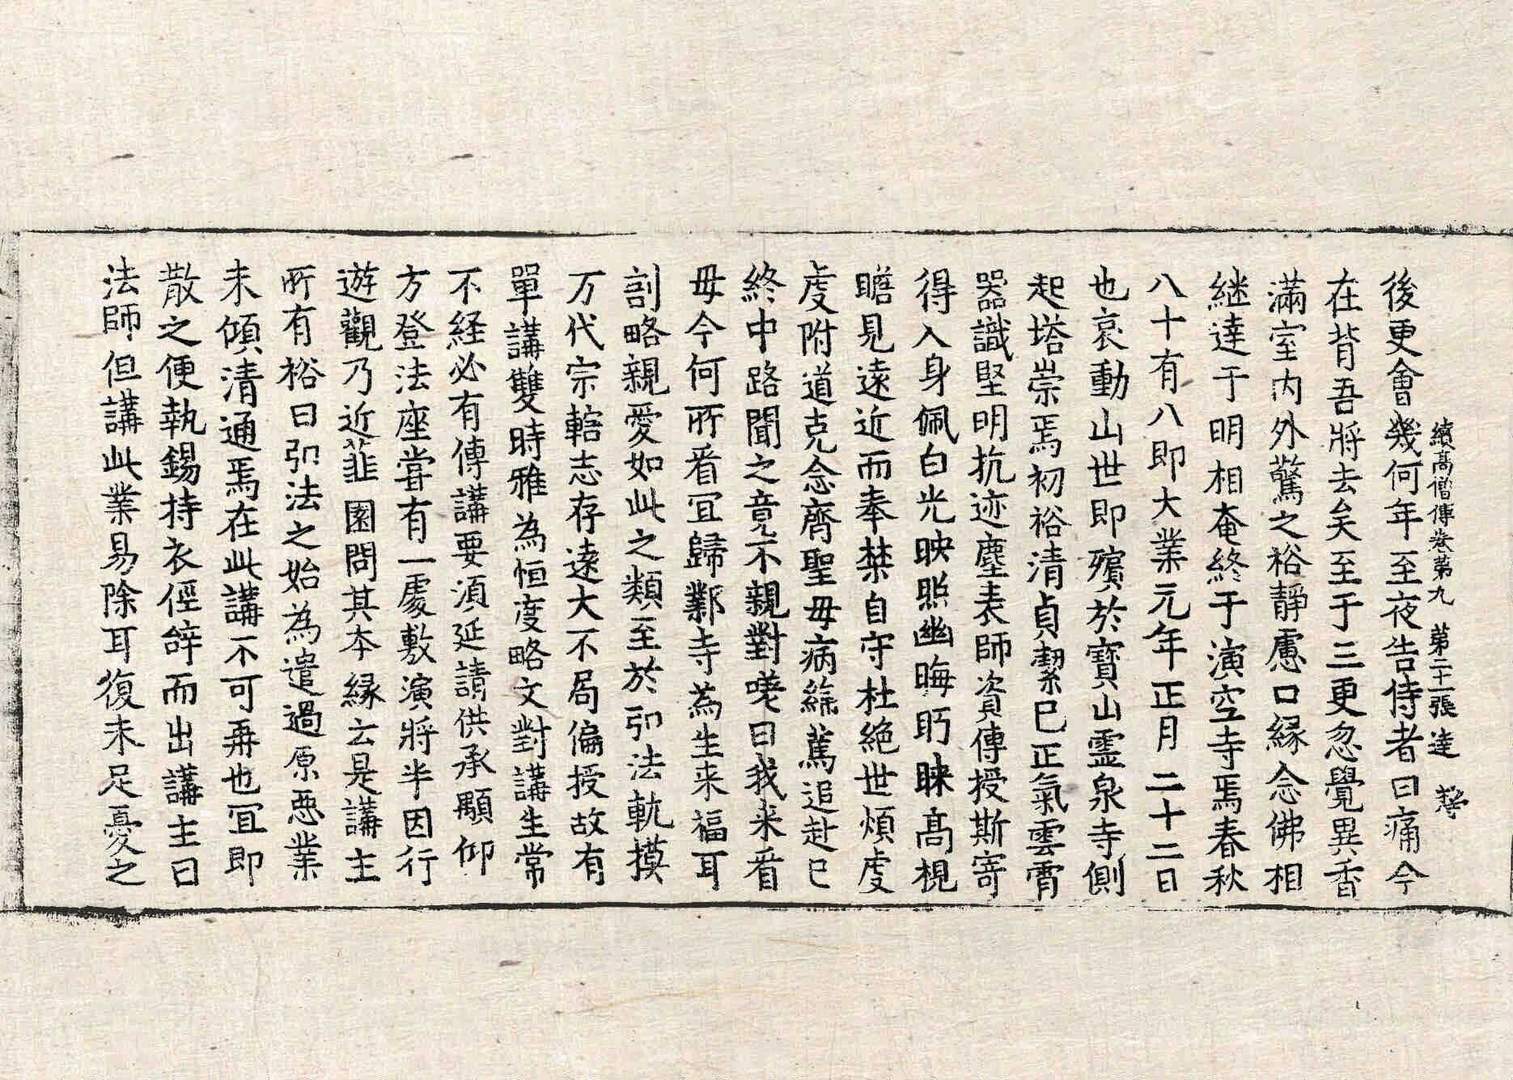 續高僧傳卷第九　第二十一張　達
後更會幾何年至夜告侍者曰痛今
在背吾將去矣至于三更忽覺異香
滿室內外驚之裕靜慮口緣念佛相
継達于明相奄終于演空寺焉春秋
八十有八即大業元年正月二十二日
也哀動山世即殯於寶山霊泉寺側
起塔崇焉初裕清貞潔已正氣雲霄
器識堅明抗迹塵表師資傳授斯寄
得入身佩白光映照幽晦眄睞髙視
瞻見遠近而奉禁自守杜絶世煩虔
虔附道克念齊聖毋病綿篤追赴已
終中路聞之竟不親對嘆曰我来看
毋今何所看冝歸鄴寺為生来福耳
割略親愛如此之類至於弘法軌摸
万代宗轄志存遠大不局偏授故有
單講雙時雅為恒度略文對講生常
不経必有傳講要須延請供承顒仰
方登法座甞有一處敷演將半因行
遊觀乃近韮園問其夲緣云是講主
所有裕曰弘法之始為遣過原惡業
未傾清通焉在此講不可再也冝即
散之便執錫持衣俓辝而出講主曰
法師但講此業易除耳復未足憂之